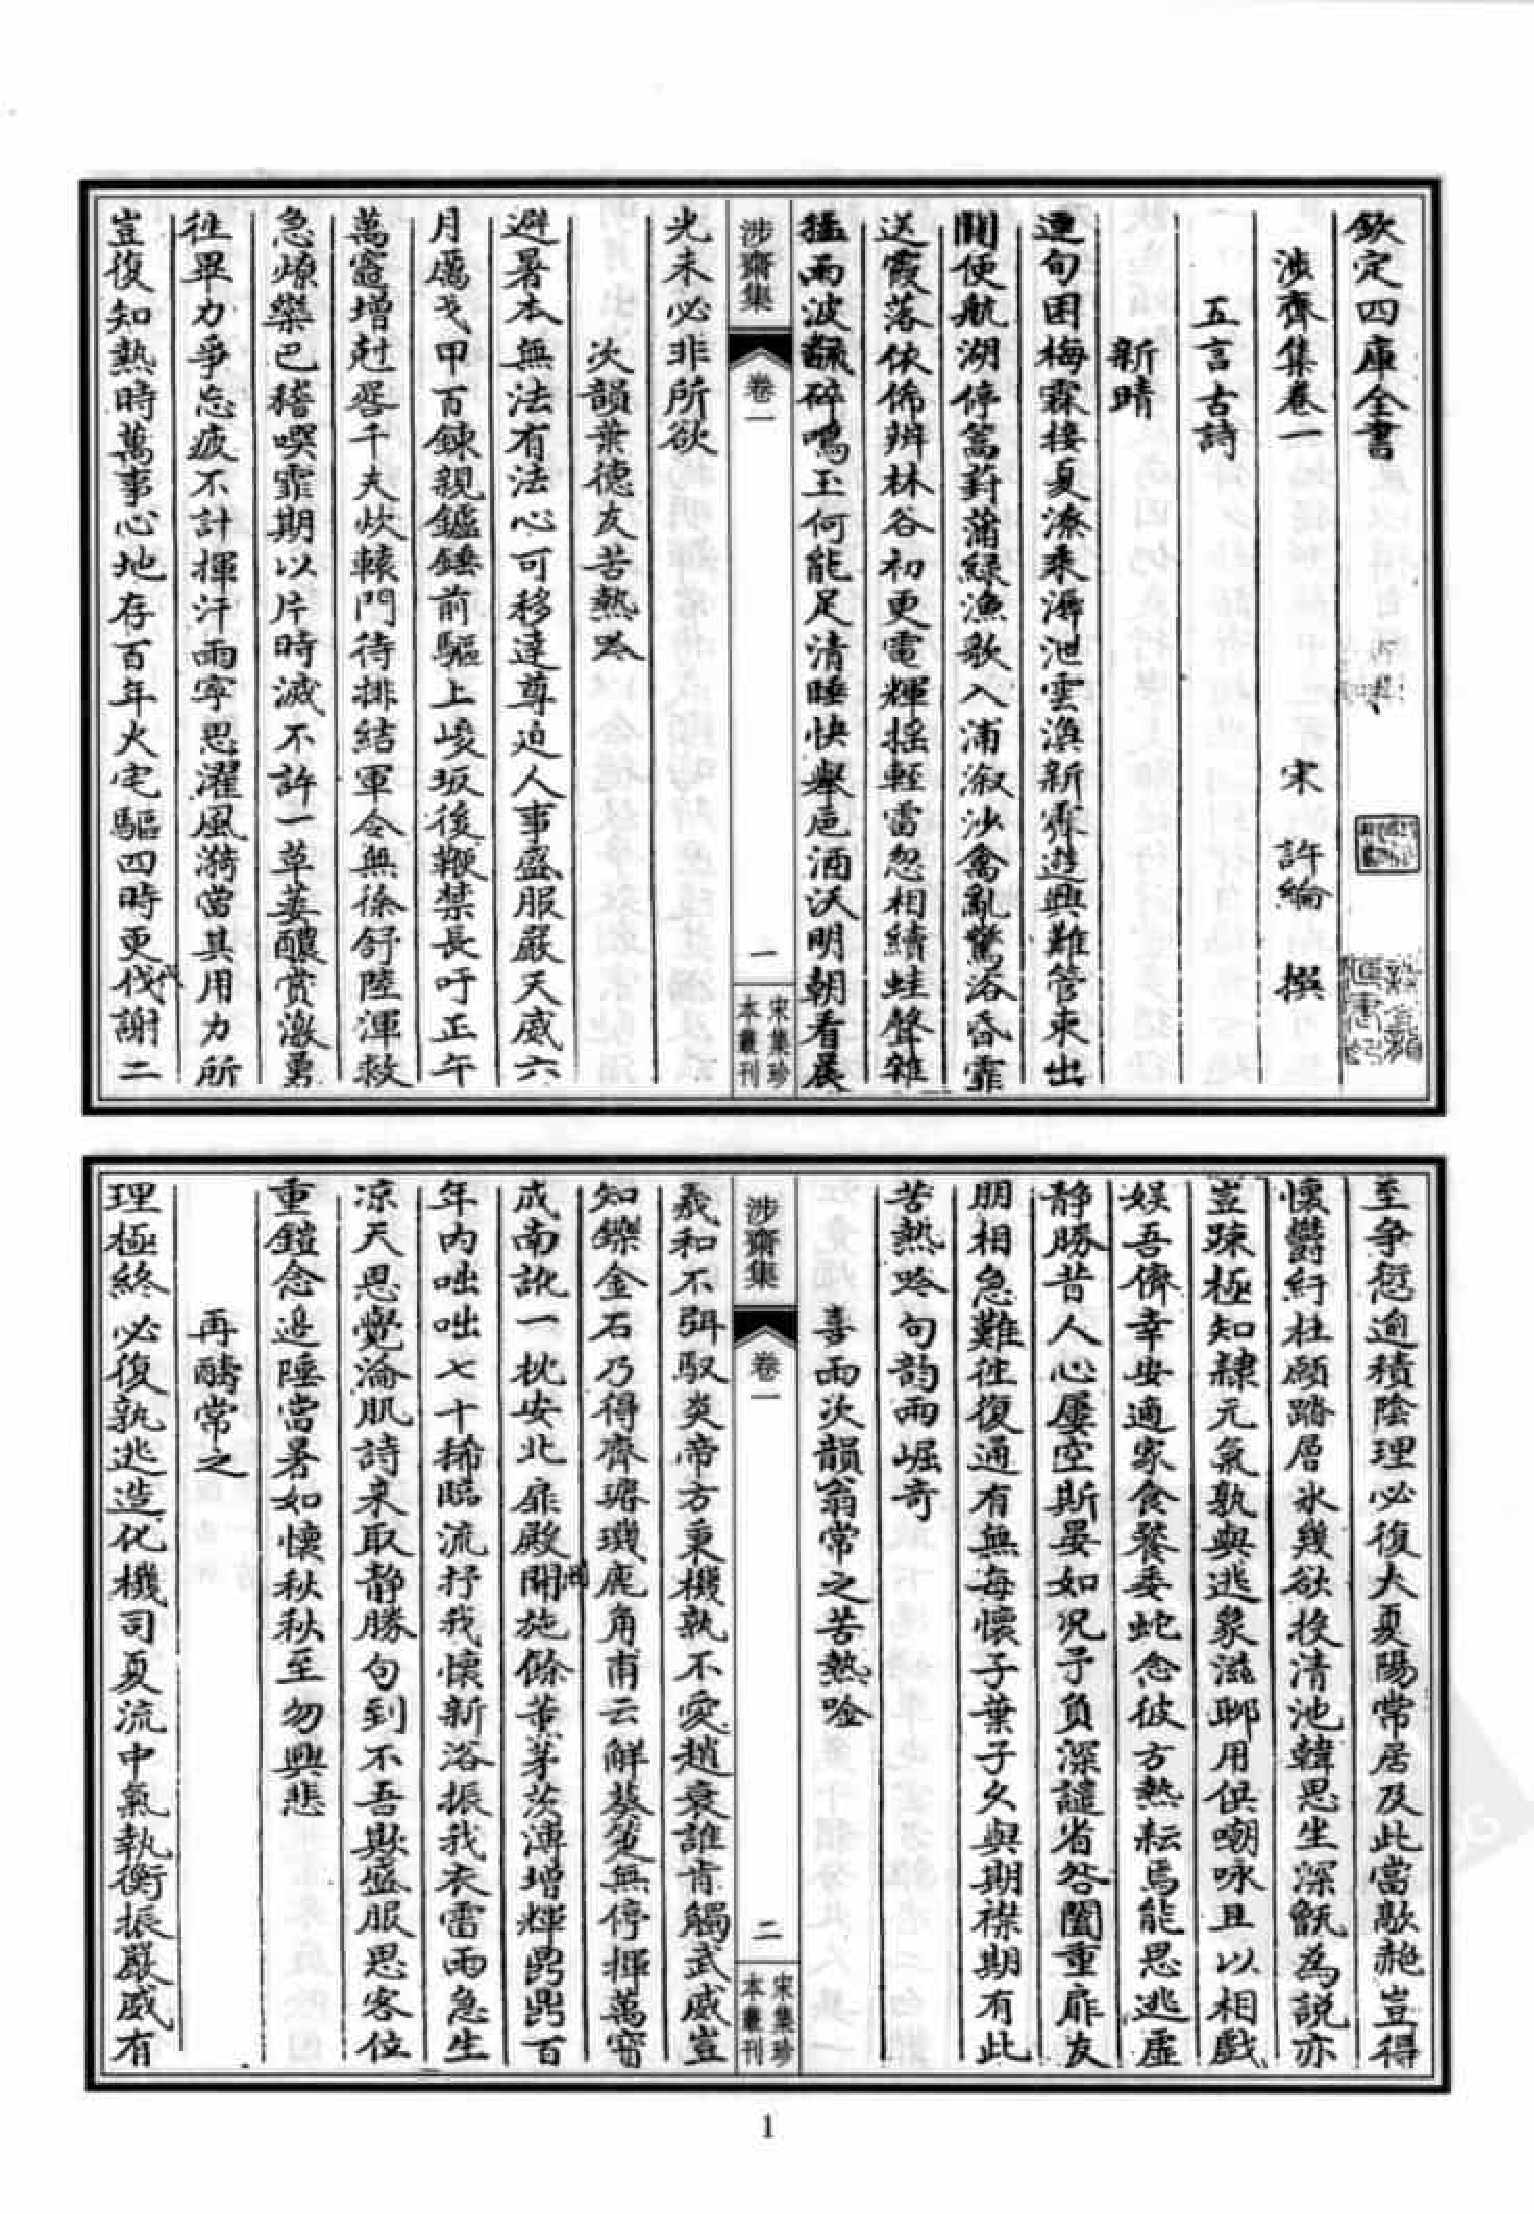 欽定四庫全書
涉齋集卷一
宋 許綸 撰
五言古詩
新晴
連旬困梅霖接夏潦來溽泄雲渙新霽遊興難管束出
關便航湖停篙葑蒲緑漁歌入浦溆沙禽亂驚浴昏霏
送霞落依俙辨林谷初更電輝揺輕雷忽相續蛙聲雜
猛雨波翻碎鳴玉何能足清睡快舉巵酒沃明朝看晨
涉齋集
卷一
一
宋集珍
本叢刊
光未必非所欲
次韻葉德友苦熱吟
避暑本無法有法心可移達尊迫人事盛服嚴天威六
月厲戈甲百鍊親鑪錘前驅上峻坂後鞭禁長吁正午
萬竈增赳㞃千夫炊轅門待排結軍令無徐舒陸渾救
急燎欒巴稽噀霏期以片時滅不許一草萎釃賞激勇
徃畢力爭忘疲不計揮汗雨寧思濯風漪當其用力所
豈復知熱時萬事心地存百年火宅驅四時更代謝二
至爭愆逾積陰理必復大夏陽常居及此當歊赩豈得
懷鬱紆杜願踏層氷幾欲投清池韓思生深甑為説亦
豈疎極知隸元氣孰與逃象滋聊用供嘲咏且以相戲
娱吾儕幸安適家食餐委蛇念彼方熱耘焉能思逃虚
静勝昔人心屢空斯晏如况予負深譴省咎闔重扉友
朋相急難徃復通有無每懷子葉子久與期襟期有此
苦熱吟句韵兩崛奇
喜雨次韻翁常之苦熱唫
涉齋集
卷一
二
宋集珍
本叢刊
羲和不弭馭炎帝方秉機孰不愛趙衰誰肯觸武威豈
知鑠金石乃得齊璿璣鹿角甫云解葵箑無停揮萬寳
成南訛一枕安北扉殿閣施餘薰茅茨溥增輝飋飋百
年内咄咄七十稀臨流抒我懷新浴振我衣雷雨急生
凉天恩覺淪肌詩來取静勝句到不吾欺盛服思客位
重鎧念邉陲當暑如懷秋秋至勿興悲
再酬常之
理極終必復孰逃造化機司夏流中氣執衡振嚴威有
1